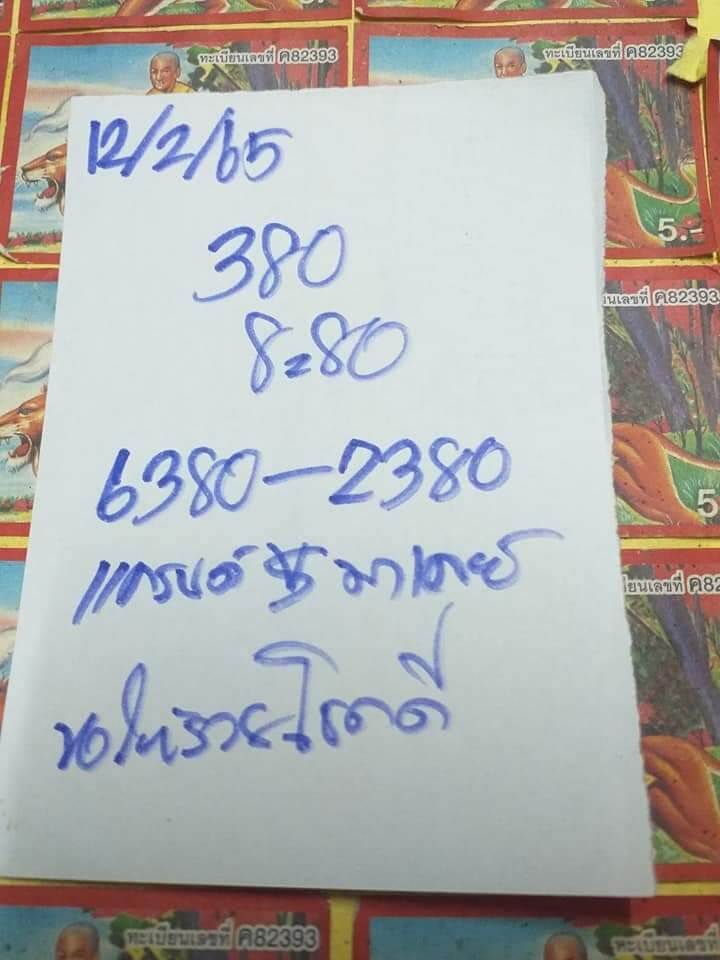 ทะเบียนเลขที่ ค82393
ทะเบียนเลขที่ ค82393
12/2/65
380
5.-
ค82393
8=80
6380-2380
5
แกรนด์ มาเลย์
ที่ ค82
ขอให้รวยโชคดี
ทะเบียนเลขที่ ค82393
ทะเบียนเลขที่ ค82393